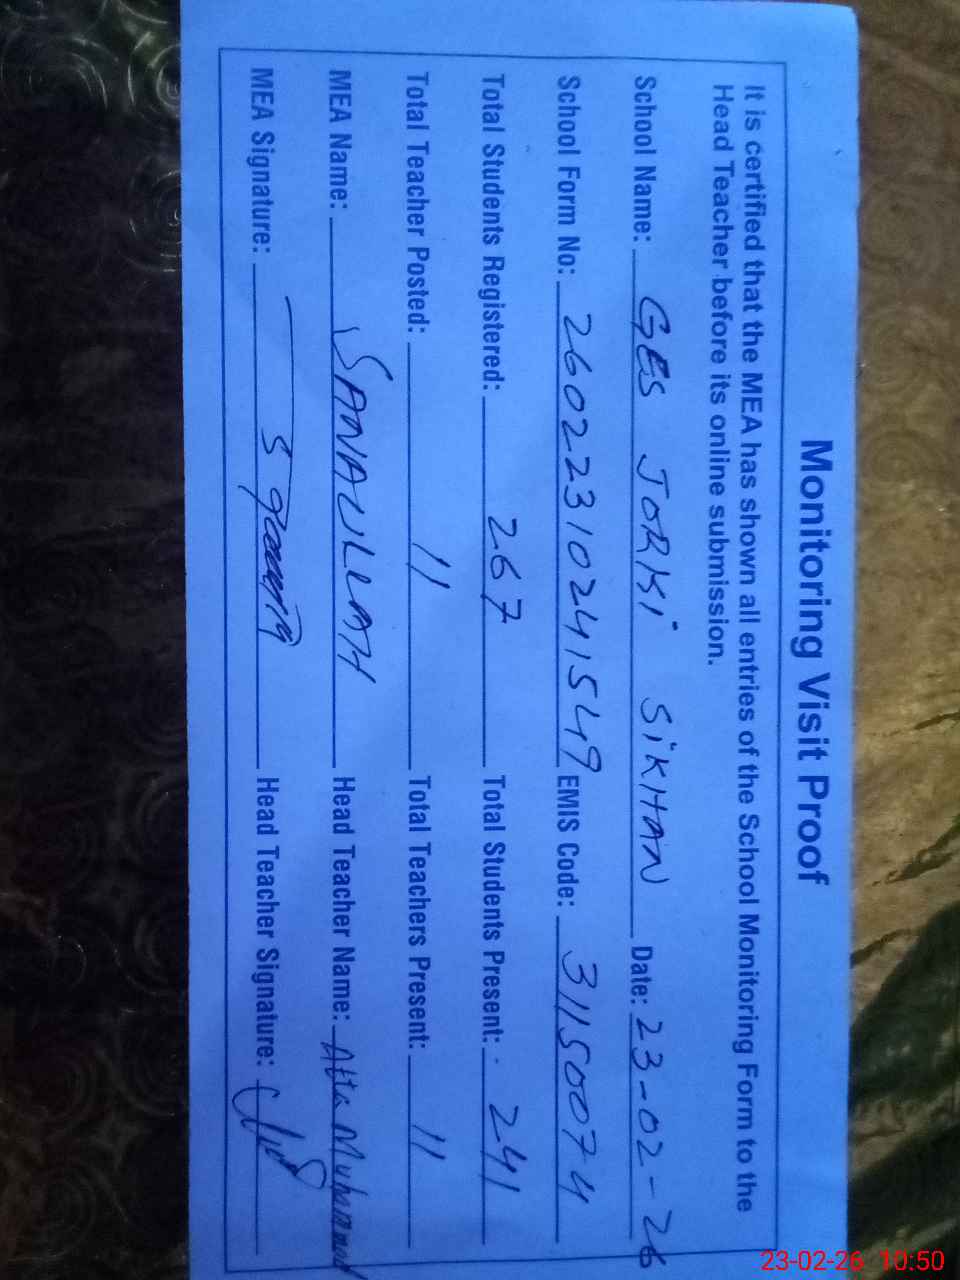 Monitoring Visit Proof
It is certified that the MEA has shown all entries of the School Monitoring Form to the
Head Teacher before its online submission.
School Name: GES JORKI SIKHAN Date: 23-02-26
School Form No: 26022310241549 EMIS Code: 31150074
Total Students Registered: 267 Total Students Present: 241
Total Teacher Posted: 11 Total Teachers Present: 11
MEA Name: SANAULLAH Head Teacher Name: Atta Muhammad
MEA Signature: Head Teacher Signature:
23-02-26 10:50